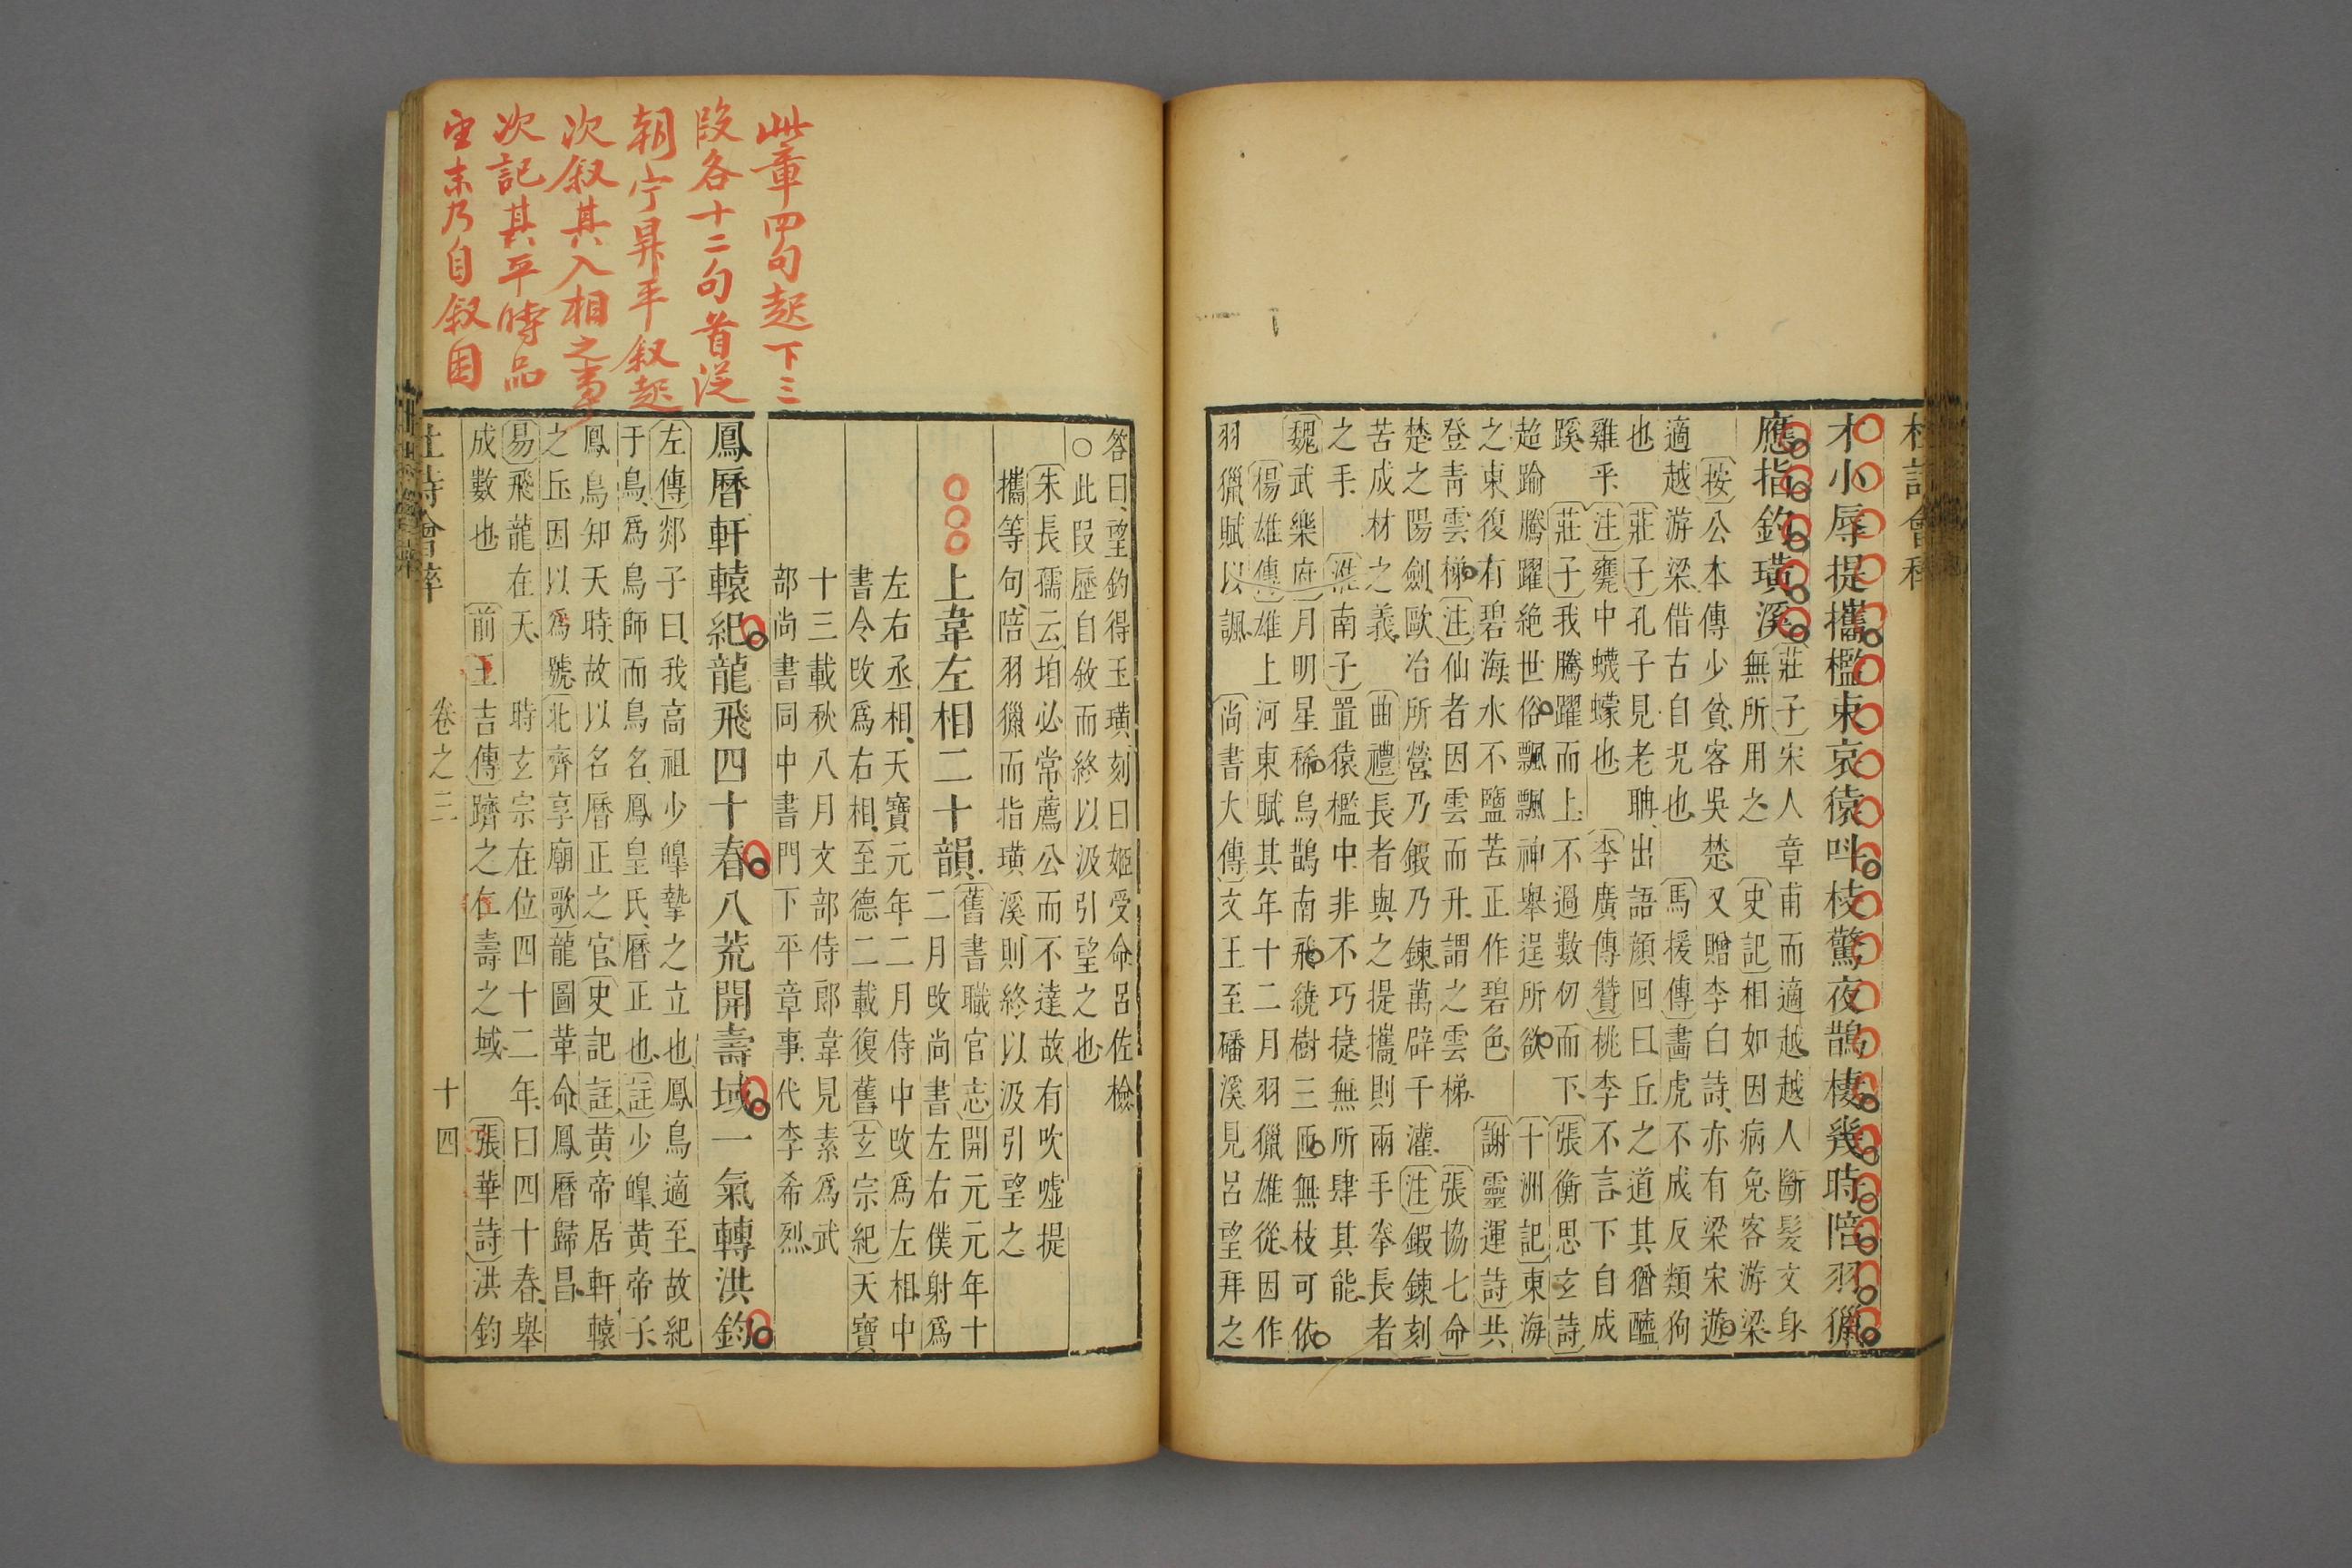 才小辱提攜檻束哀猿呌枝驚夜鵲棲幾時陪羽獵
應指釣璜溪
莊子宋人章甫而適越越人斷髮文身
無所用之史記相如因病免客游梁
按公本傳少貧客吳楚又贈李白詩亦有梁宋遊
適越游梁借古自况也馬援傳畵虎不成反類狗
也莊子孔子見老聃出語顔回曰丘之道其猶醯
雞乎注甕中蠛蠓也李廣傳贊桃李不言下自成
蹊莊子我騰躍而上不過數仞而下張衡思玄詩
超踰騰躍絶世俗飄飄神舉逞所欲十洲記東海
之東復有碧海水不鹽苦正作碧色謝靈運詩共
登青雲梯注仙者因雲而升謂之雲梯張協七命
楚之陽劍歐冶所營乃鍜乃鍊萬辟千灌注鍜鍊刻
苦成材之義曲禮長者與之提攜則兩手奉長者
之手淮南子置猿檻中非不巧㨗無所肆其能
魏武樂府月明星稀烏鵲南飛繞樹三匝無枝可依
楊雄傳雄上河東賦其年十二月羽獵雄從因作
羽獵賦以諷尚書大傳文王至磻溪見呂望拜之
答曰望釣得玉璜刻曰姬受命呂佐檢
○此叚歷自敘而終以汲引望之也
朱長孺云垍必常薦公而不達故有吹噓提
攜等句陪羽獵而指璜溪則終以汲引望之
上韋左相二十韻舊書職官志開元元年十
二月改尚書左右僕射爲
左右丞相天寶元年二月侍中改爲左相中
書令改爲右相至德二載復舊玄宗紀天寶
十三載秋八月文部侍郎韋見素爲武
部尚書同中書門下平章事代李希烈
鳳曆軒轅紀龍飛四十春八荒開壽域一氣轉洪鈞
左傳郯子曰我高祖少皥摯之立也鳳鳥適至故紀
于鳥爲鳥師而鳥名鳳皇氏曆正也註少皥黄帝子
鳳鳥知天時故以名曆正之官史記註黄帝居軒轅
之丘因以爲號北齊享廟歌龍圖革命鳳曆歸昌
易飛龍在天時玄宗在位四十二年曰四十春舉
成數也前王吉傳躋之仁壽之域張華詩洪鈞
卷之三
十四
此章四句起下三
段各十二句首從
朝宁昇平叙起
次叙其入相之事
次記其平時品
望末乃自叙困